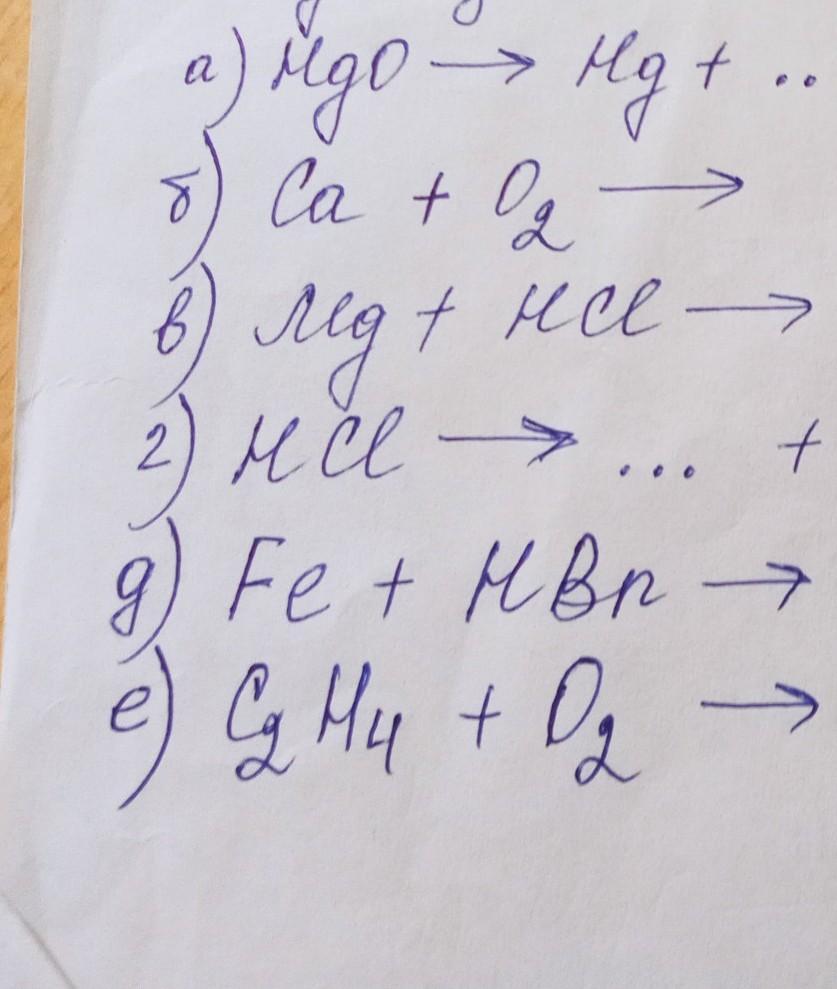 а) HgO → Hg + ..
б) Ca + O₂ →
в) Mg + HCl →
г) HCl → ... +
д) Fe + HBr →
е) C₂H₄ + O₂ →